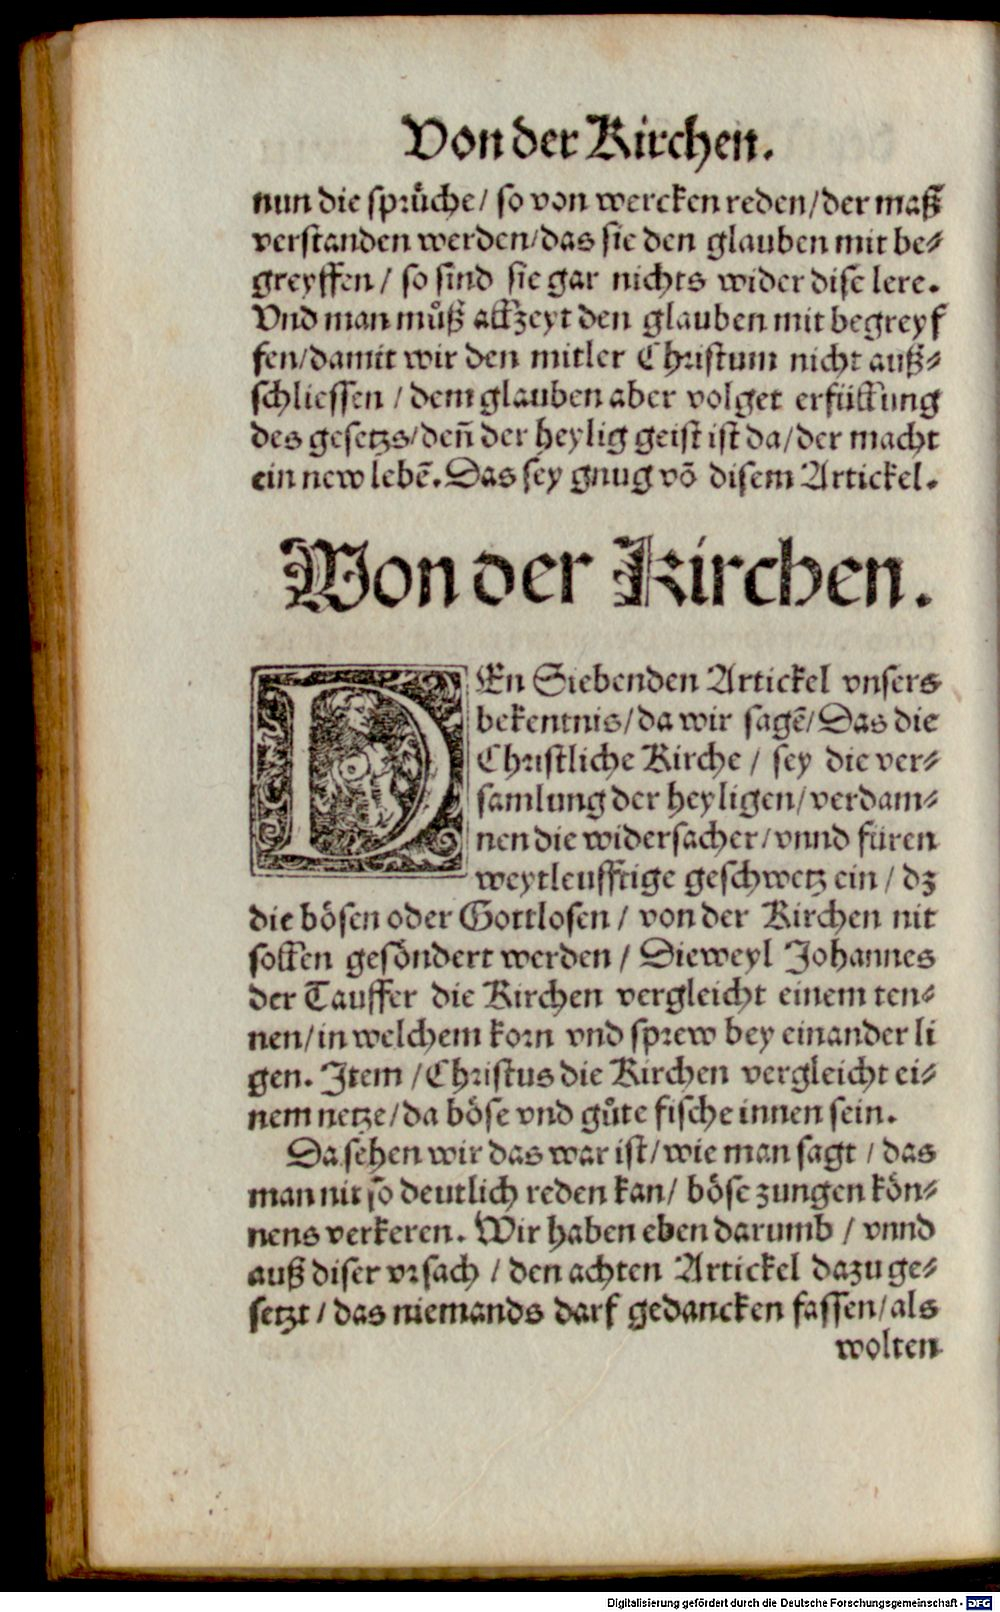 Von der Kirchen.
nun die sprüche/ so von wercken reden/der maß
verstanden werden/das sie den glauben mit be⸗
greyffen / so sind sie gar nichts wider dise lere.
Vnd man můß allzeyt den glauben mit begreyf
fen/damit wir den mitler Christum nicht auß⸗
schliessen / dem glauben aber volget erfüllung
des gesetzs/deñ der heylig geist ist da/der macht
ein new lebẽ. Das sey gnug võ disem Artickel.
Von der Kirchen.
DEn Siebenden Artickel vnsers
bekentnis/da wir sagẽ/Das die
Christliche Kirche / sey die ver⸗
samlung der heyligen/verdam⸗
nen die widersacher/vnnd füren
weytleufftige geschwetz ein / dz
die bösen oder Gottlosen / von der Kirchen nit
sollen gesöndert werden / Dieweyl Johannes
der Tauffer die Kirchen vergleicht einem ten⸗
nen/in welchem korn vnd sprew bey einander li
gen. Item /Christus die Kirchen vergleicht ei⸗
nem netze/da böse vnd gůte fische innen sein.
Da sehen wir das war ist/wie man sagt / das
man nit so deutlich reden kan/ böse zungen kön⸗
nens verkeren. Wir haben eben darumb / vnnd
auß diser vrsach / den achten Artickel dazu ge⸗
setzt / das niemands darf gedancken fassen/als
wolten
Digitalisierung gefördert durch die Deutsche Forschungsgemeinschaft - DFG